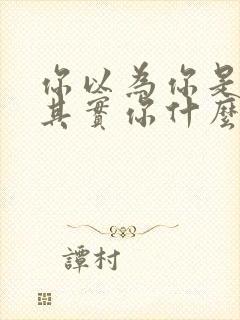 你以為你是
其實你什麼
譚村